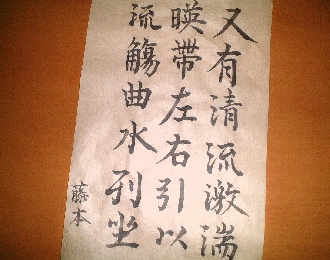 又有清流激湍
暎帶左右引以
流觴曲水列坐
藤本